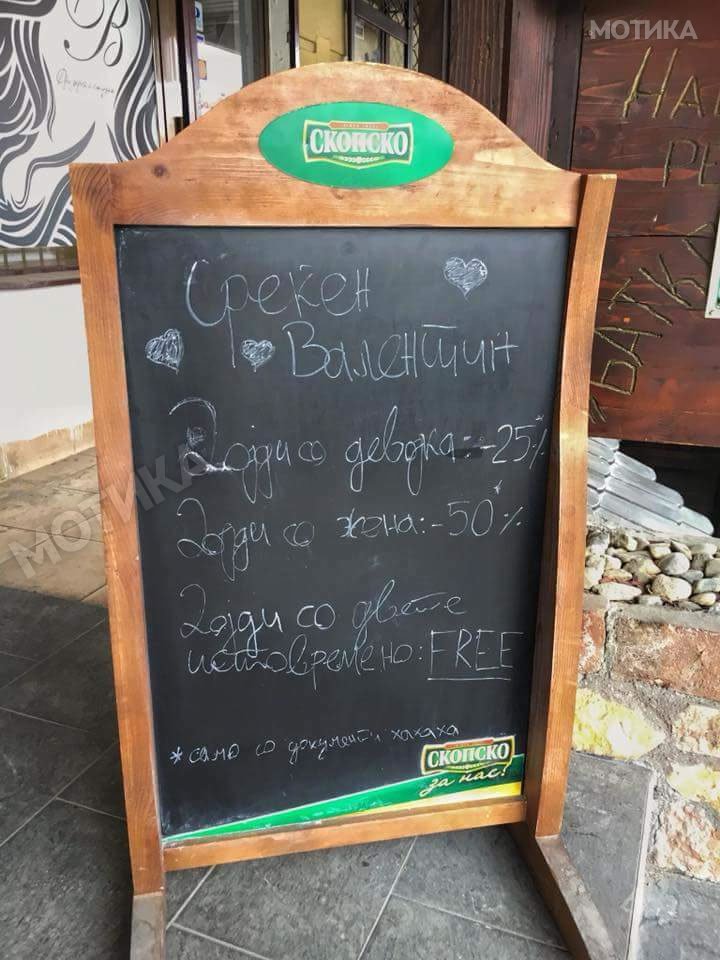 МОТИКА
СКОПСКО
Среќен
Валентин
Дојди со девојка: -25%
Дојди со жена: -50%
Дојди со двете
истовремено: FREE
* само со документи хахаха
СКОПСКО
за нас!
МОТИКА
В
НА
РЕ